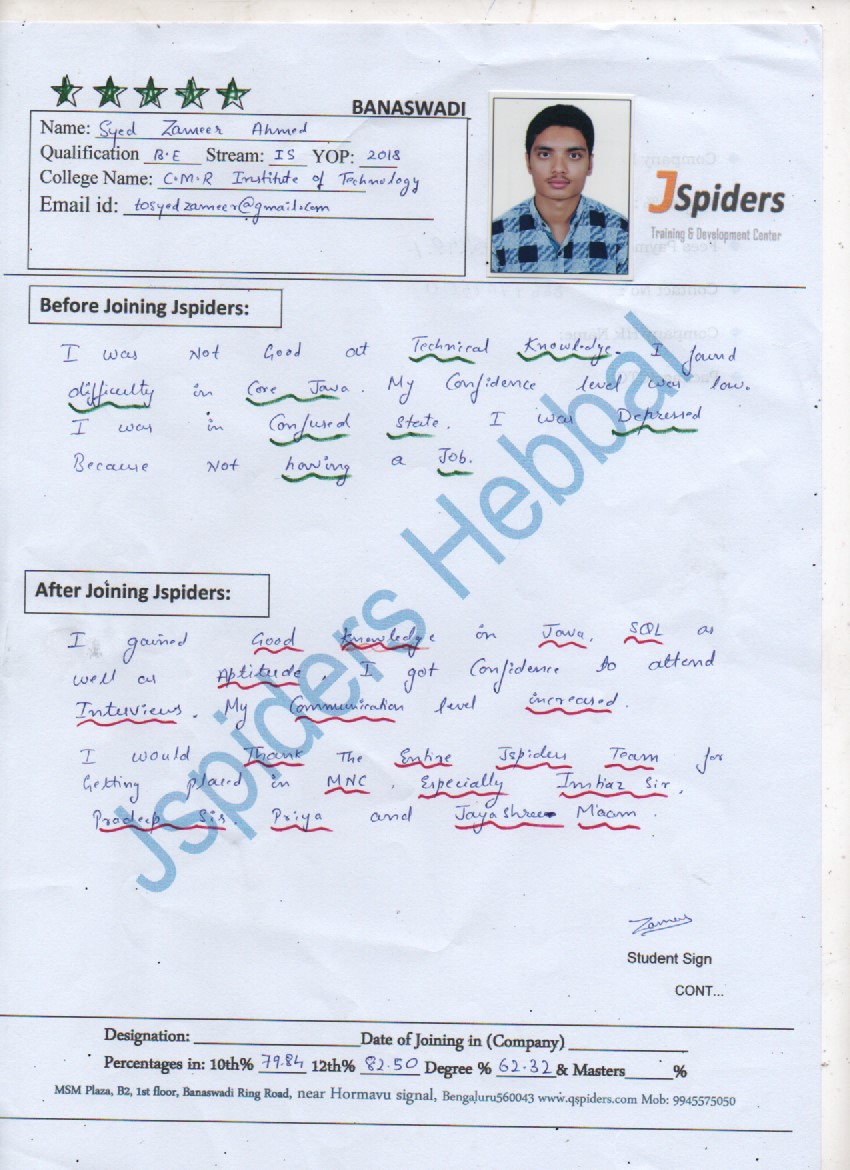 BANASWADI
Name: Syed Zameer Ahmed
Qualification B.E Stream: IS YOP: 2018
College Name: C.M.R Institute of Technology
Email id: tosyedzameer@gmail.com
JSpiders
Training & Development Center
Before Joining Jspiders:
I was Not Good at Technical Knowledge. I found
difficulty in Core Java. My Confidence level was low.
I was in Confused State. I was Depressed
Because Not having a Job.
After Joining Jspiders:
I gained Good Knowledge in Java, SQL as
well as Aptitude. I got Confidence to attend
Interviews. My Communication level increased.
I would Thank The Entire Jspiders Team for
Getting placed in MNC. Especially Imtiaz Sir,
Pradeep Sir. Priya and Jayashree Maam.
Jspiders Hebbal
Student Sign
CONT...
Designation: Date of Joining in (Company)
Percentages in: 10th% 79.84 12th% 82.50 Degree % 62.32 & Masters %
MSM Plaza, B2, 1st floor, Banaswadi Ring Road, near Hormavu signal, Bengaluru560043 www.qspiders.com Mob: 9945575050